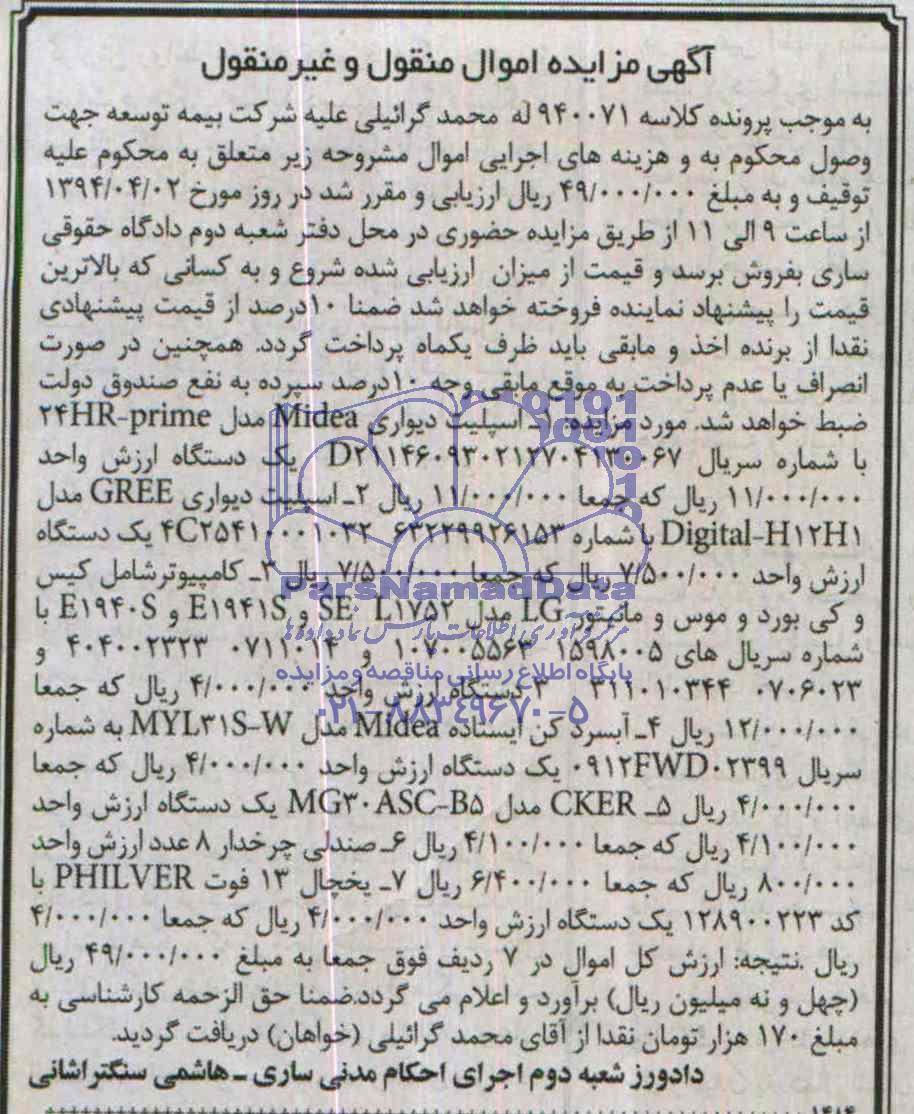 آگهی مزایده اموال منقول و غیر منقول
به موجب پرونده کلاسه ۹۴۰۰۷۱ له محمد گرائیلی علیه شرکت بیمه توسعه جهت
وصول محکوم به و هزینه های اجرایی اموال مشروحه زیر متعلق به محکوم علیه
توقیف و به مبلغ ۴۹/۰۰۰/۰۰۰ ریال ارزیابی و مقرر شد در روز مورخ ۱۳۹۴/۰۴/۰۲
از ساعت ۹ الی ۱۱ از طریق مزایده حضوری در محل دفتر شعبه دوم دادگاه حقوقی
ساری بفروش برسد و قیمت از میزان ارزیابی شده شروع و به کسانی که بالاترین
قیمت را پیشنهاد نماینده فروخته خواهد شد ضمنا ۱۰درصد از قیمت پیشنهادی
نقدا از برنده اخذ و مابقی باید ظرف یکماه پرداخت گردد. همچنین در صورت
انصراف یا عدم پرداخت به موقع مابقی وجه ۱۰درصد سپرده به نفع صندوق دولت
ضبط خواهد شد. مورد مزایده: ۱ـ اسپلیت دیواری Midea مدل ۲۴HR-prime
با شماره سریال D۲۱۱۴۶۰۹۳۰۲۱۲۷۰۴۱۳۰۰۶۷ یک دستگاه ارزش واحد
۱۱/۰۰۰/۰۰۰ ریال که جمعا ۱۱/۰۰۰/۰۰۰ ریال ۲ـ اسپلیت دیواری GREE مدل
Digital-H۱۲H۱ با شماره ۶۳۲۲۹۹۲۶۱۵۳ ۴C۲۵۴۱۰۰۰۱۰۳۲ یک دستگاه
ارزش واحد ۷/۵۰۰/۰۰۰ ریال که جمعا ۷/۵۰۰/۰۰۰ ریال ۳ـ کامپیوتر شامل کیس
و کی بورد و موس و مانیتور LG مدل SE L۱۷۵۲ و E۱۹۴۱S و E۱۹۴۰S با
شماره سریال های ۱۵۹۸۰۰۵ ۱۰۷۰۰۵۵۶۳ و ۰۷۱۱۰۱۴ ۴۰۴۰۰۲۳۲۳ و
۰۷۰۶۰۲۳ ۳۱۱۰۱۰۳۴۴ ۳ دستگاه ارزش واحد ۴/۰۰۰/۰۰۰ ریال که جمعا
۱۲/۰۰۰/۰۰۰ ریال ۴ـ آبسرد کن ایستاده Midea مدل MYL۳۱S-W به شماره
سریال ۰۹۱۲FWD۰۲۳۹۹ یک دستگاه ارزش واحد ۴/۰۰۰/۰۰۰ ریال که جمعا
۴/۰۰۰/۰۰۰ ریال ۵ـ CKER مدل MG۳۰ASC-B۵ یک دستگاه ارزش واحد
۴/۱۰۰/۰۰۰ ریال که جمعا ۴/۱۰۰/۰۰۰ ریال ۶ـ صندلی چرخدار ۸ عدد ارزش واحد
۸۰۰/۰۰۰ ریال که جمعا ۶/۴۰۰/۰۰۰ ریال ۷ـ یخچال ۱۳ فوت PHILVER با
کد ۱۲۸۹۰۰۲۲۳ یک دستگاه ارزش واحد ۴/۰۰۰/۰۰۰ ریال که جمعا ۴/۰۰۰/۰۰۰
ریال .نتیجه: ارزش کل اموال در ۷ ردیف فوق جمعا به مبلغ ۴۹/۰۰۰/۰۰۰ ریال
(چهل و نه میلیون ریال) برآورد و اعلام می گردد.ضمنا حق الزحمه کارشناسی به
مبلغ ۱۷۰ هزار تومان نقدا از آقای محمد گرائیلی (خواهان) دریافت گردید.
دادورز شعبه دوم اجرای احکام مدنی ساری ـ هاشمی سنگتراشانی
ParsNamadData
مرکز فرآوری اطلاعات پارس نماد داده ها
پایگاه اطلاع رسانی مناقصه و مزایده
۰۲۱-۸۸۳۴۹۶۷۰-۵